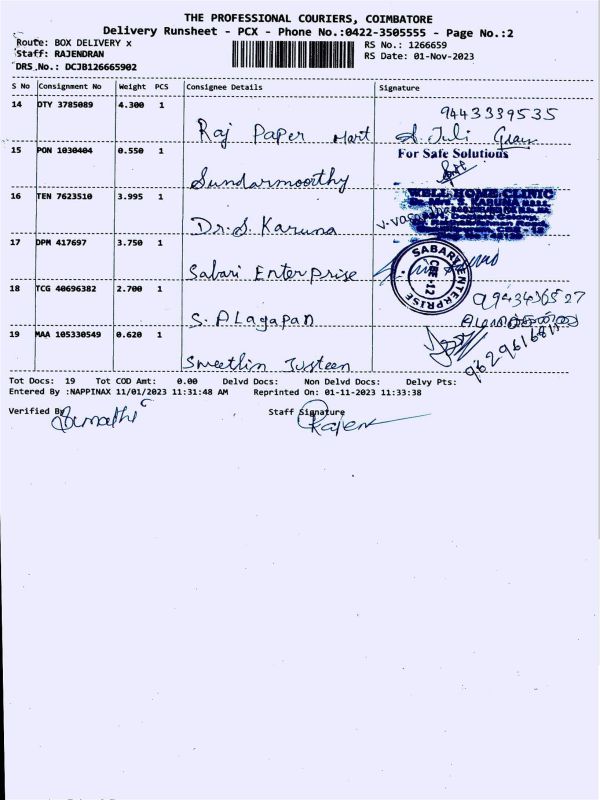 THE PROFESSIONAL COURIERS, COIMBATORE
Delivery Runsheet - PCX - Phone No.:0422-3505555 - Page No.:2
Route: BOX DELIVERY x
Staff: RAJENDRAN
DRS.No.: DCJB126665902
RS No.: 1266659
RS Date: 01-Nov-2023
S No Consignment No Weight PCS Consignee Details Signature
14 DTY 3785089 4.300 1 Raj Paper Mart 9443339535
15 PON 1030404 0.550 1 Sundarmoorthy For Safe Solutions
16 TEN 7623510 3.995 1 Dr.S. Karuna WELL HOME CLINIC
17 DPM 417697 3.750 1 Sabari Enterprise SABARI ENTERPRISE CBE-12
18 TCG 40696382 2.700 1 S. ALagapan
19 MAA 105330549 0.620 1 Sweetlin Justeen
Tot Docs: 19 Tot COD Amt: 0.00 Delvd Docs: Non Delvd Docs: Delvy Pts:
Entered By :NAPPINAX 11/01/2023 11:31:48 AM Reprinted On: 01-11-2023 11:33:38
Verified By
Staff Signature